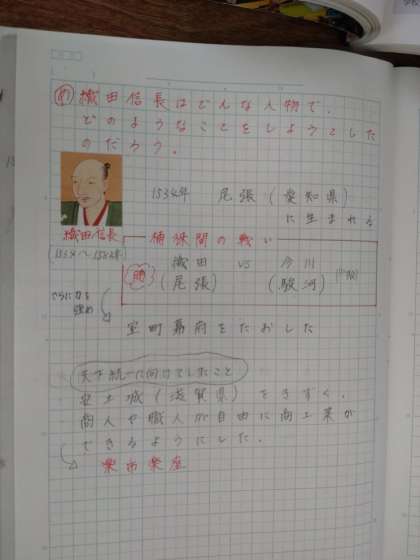 め 織田信長はどんな人物で、
どのようなことをしようとした
のだろう。
1534年 尾張(愛知県)
に生まれる
織田信長
(1534〜1582年)
桶狭間の戦い
勝 織田 vs 今川
(尾張) (駿河)
さらに力を
強め
室町幕府をたおした
天下統一に向けてしたこと
安土城(滋賀県)をきずく。
商人や職人が自由に商工業が
できるようにした。
楽市楽座